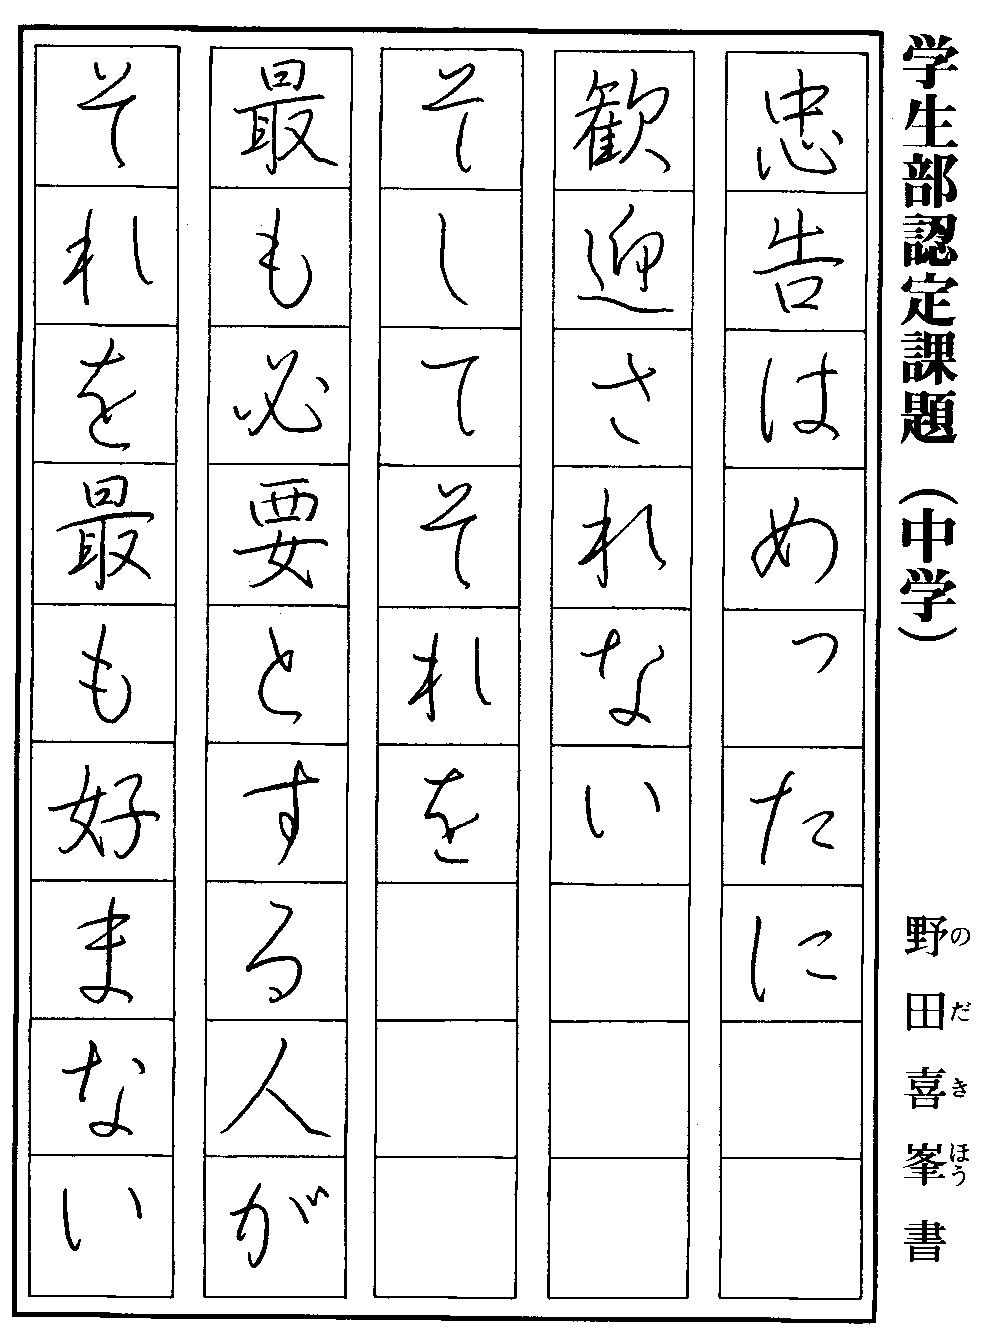 学生部認定課題（中学）
野田喜峯書
のだきほう
忠告はめったに
歓迎されない
そしてそれを
最も必要とする人が
それを最も好まない